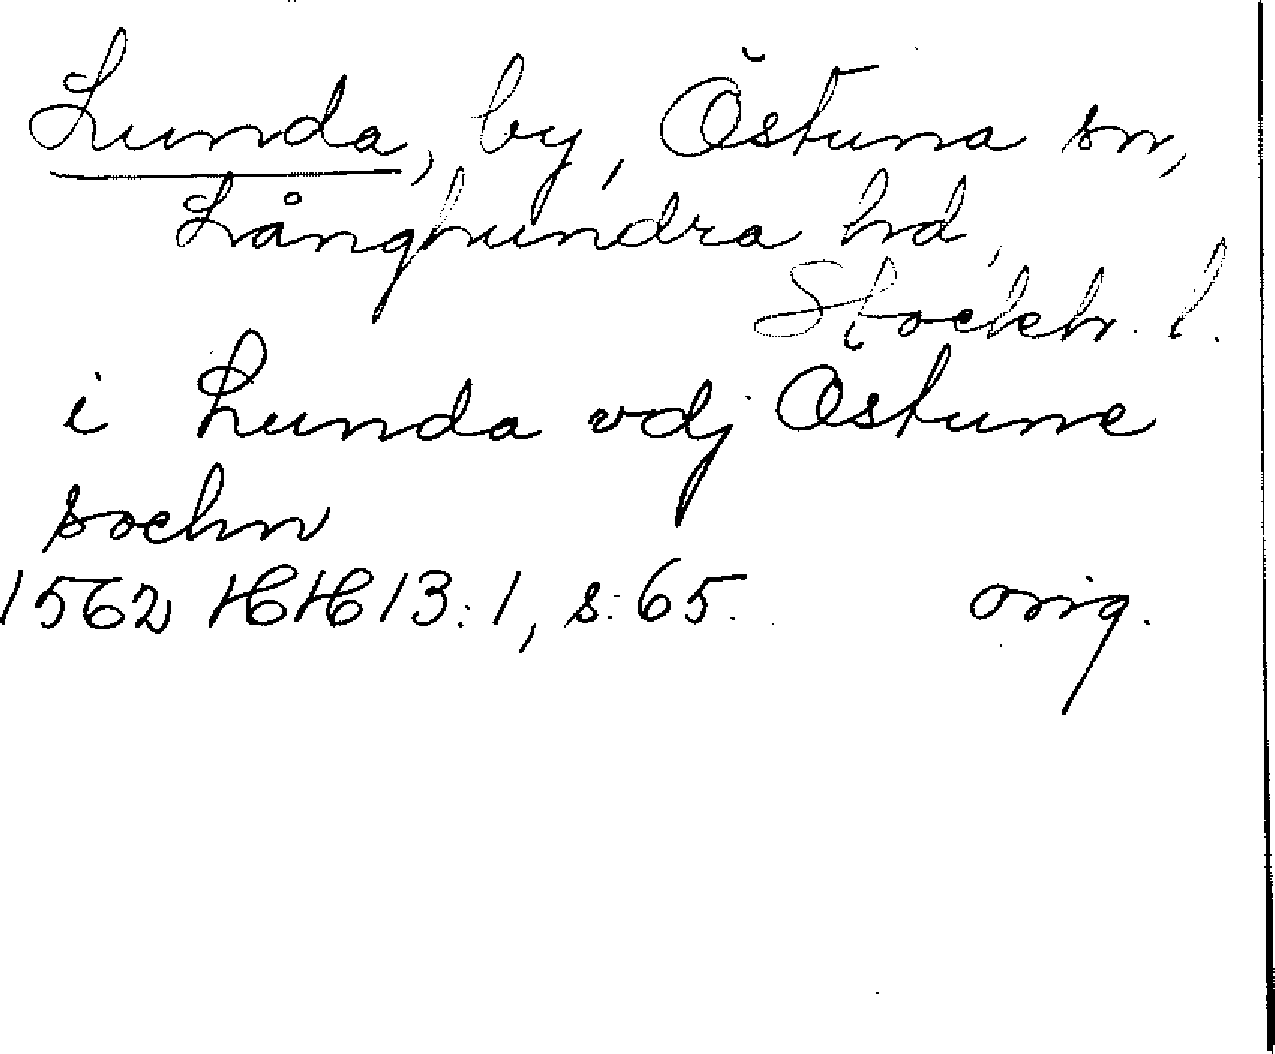 Lunda, by, Östuna sn,
Långhundra hd,
Stockh. l.
i Lunda vdj Östune
sochn
1562 HH 13:1, s. 65. orig.